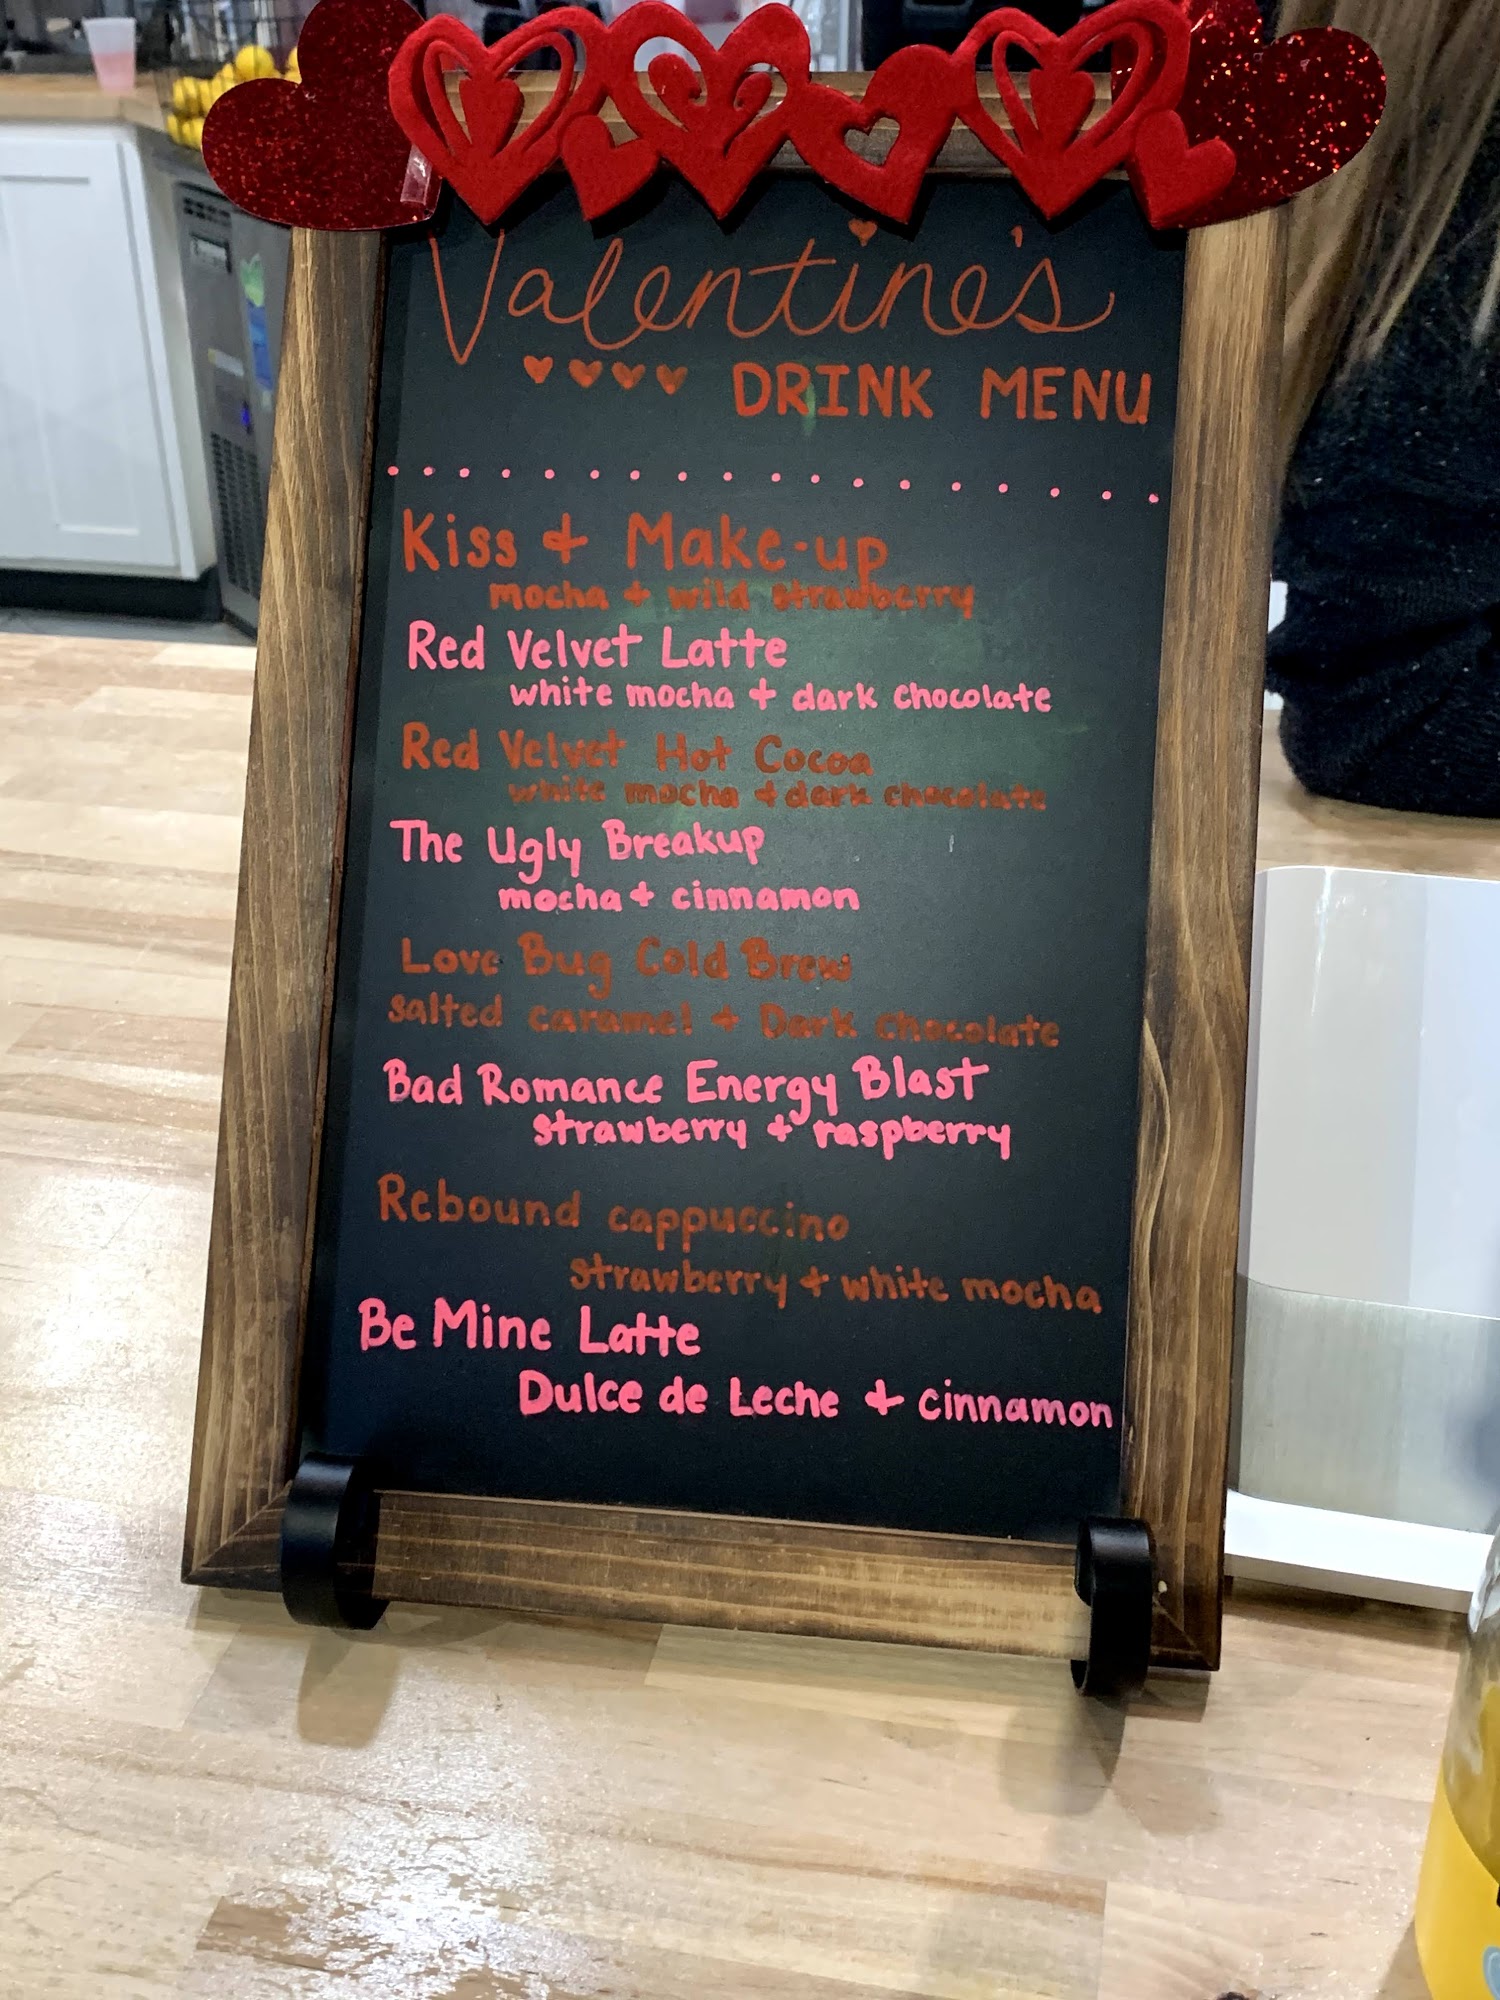 Valentine's
DRINK MENU
Kiss + Make-up
mocha + wild strawberry
Red Velvet Latte
white mocha + dark chocolate
Red Velvet Hot Cocoa
white mocha + dark chocolate
The Ugly Breakup
mocha + cinnamon
Love Bug Cold Brew
salted caramel + Dark chocolate
Bad Romance Energy Blast
strawberry + raspberry
Rebound cappuccino
strawberry + white mocha
Be Mine Latte
Dulce de Leche + cinnamon